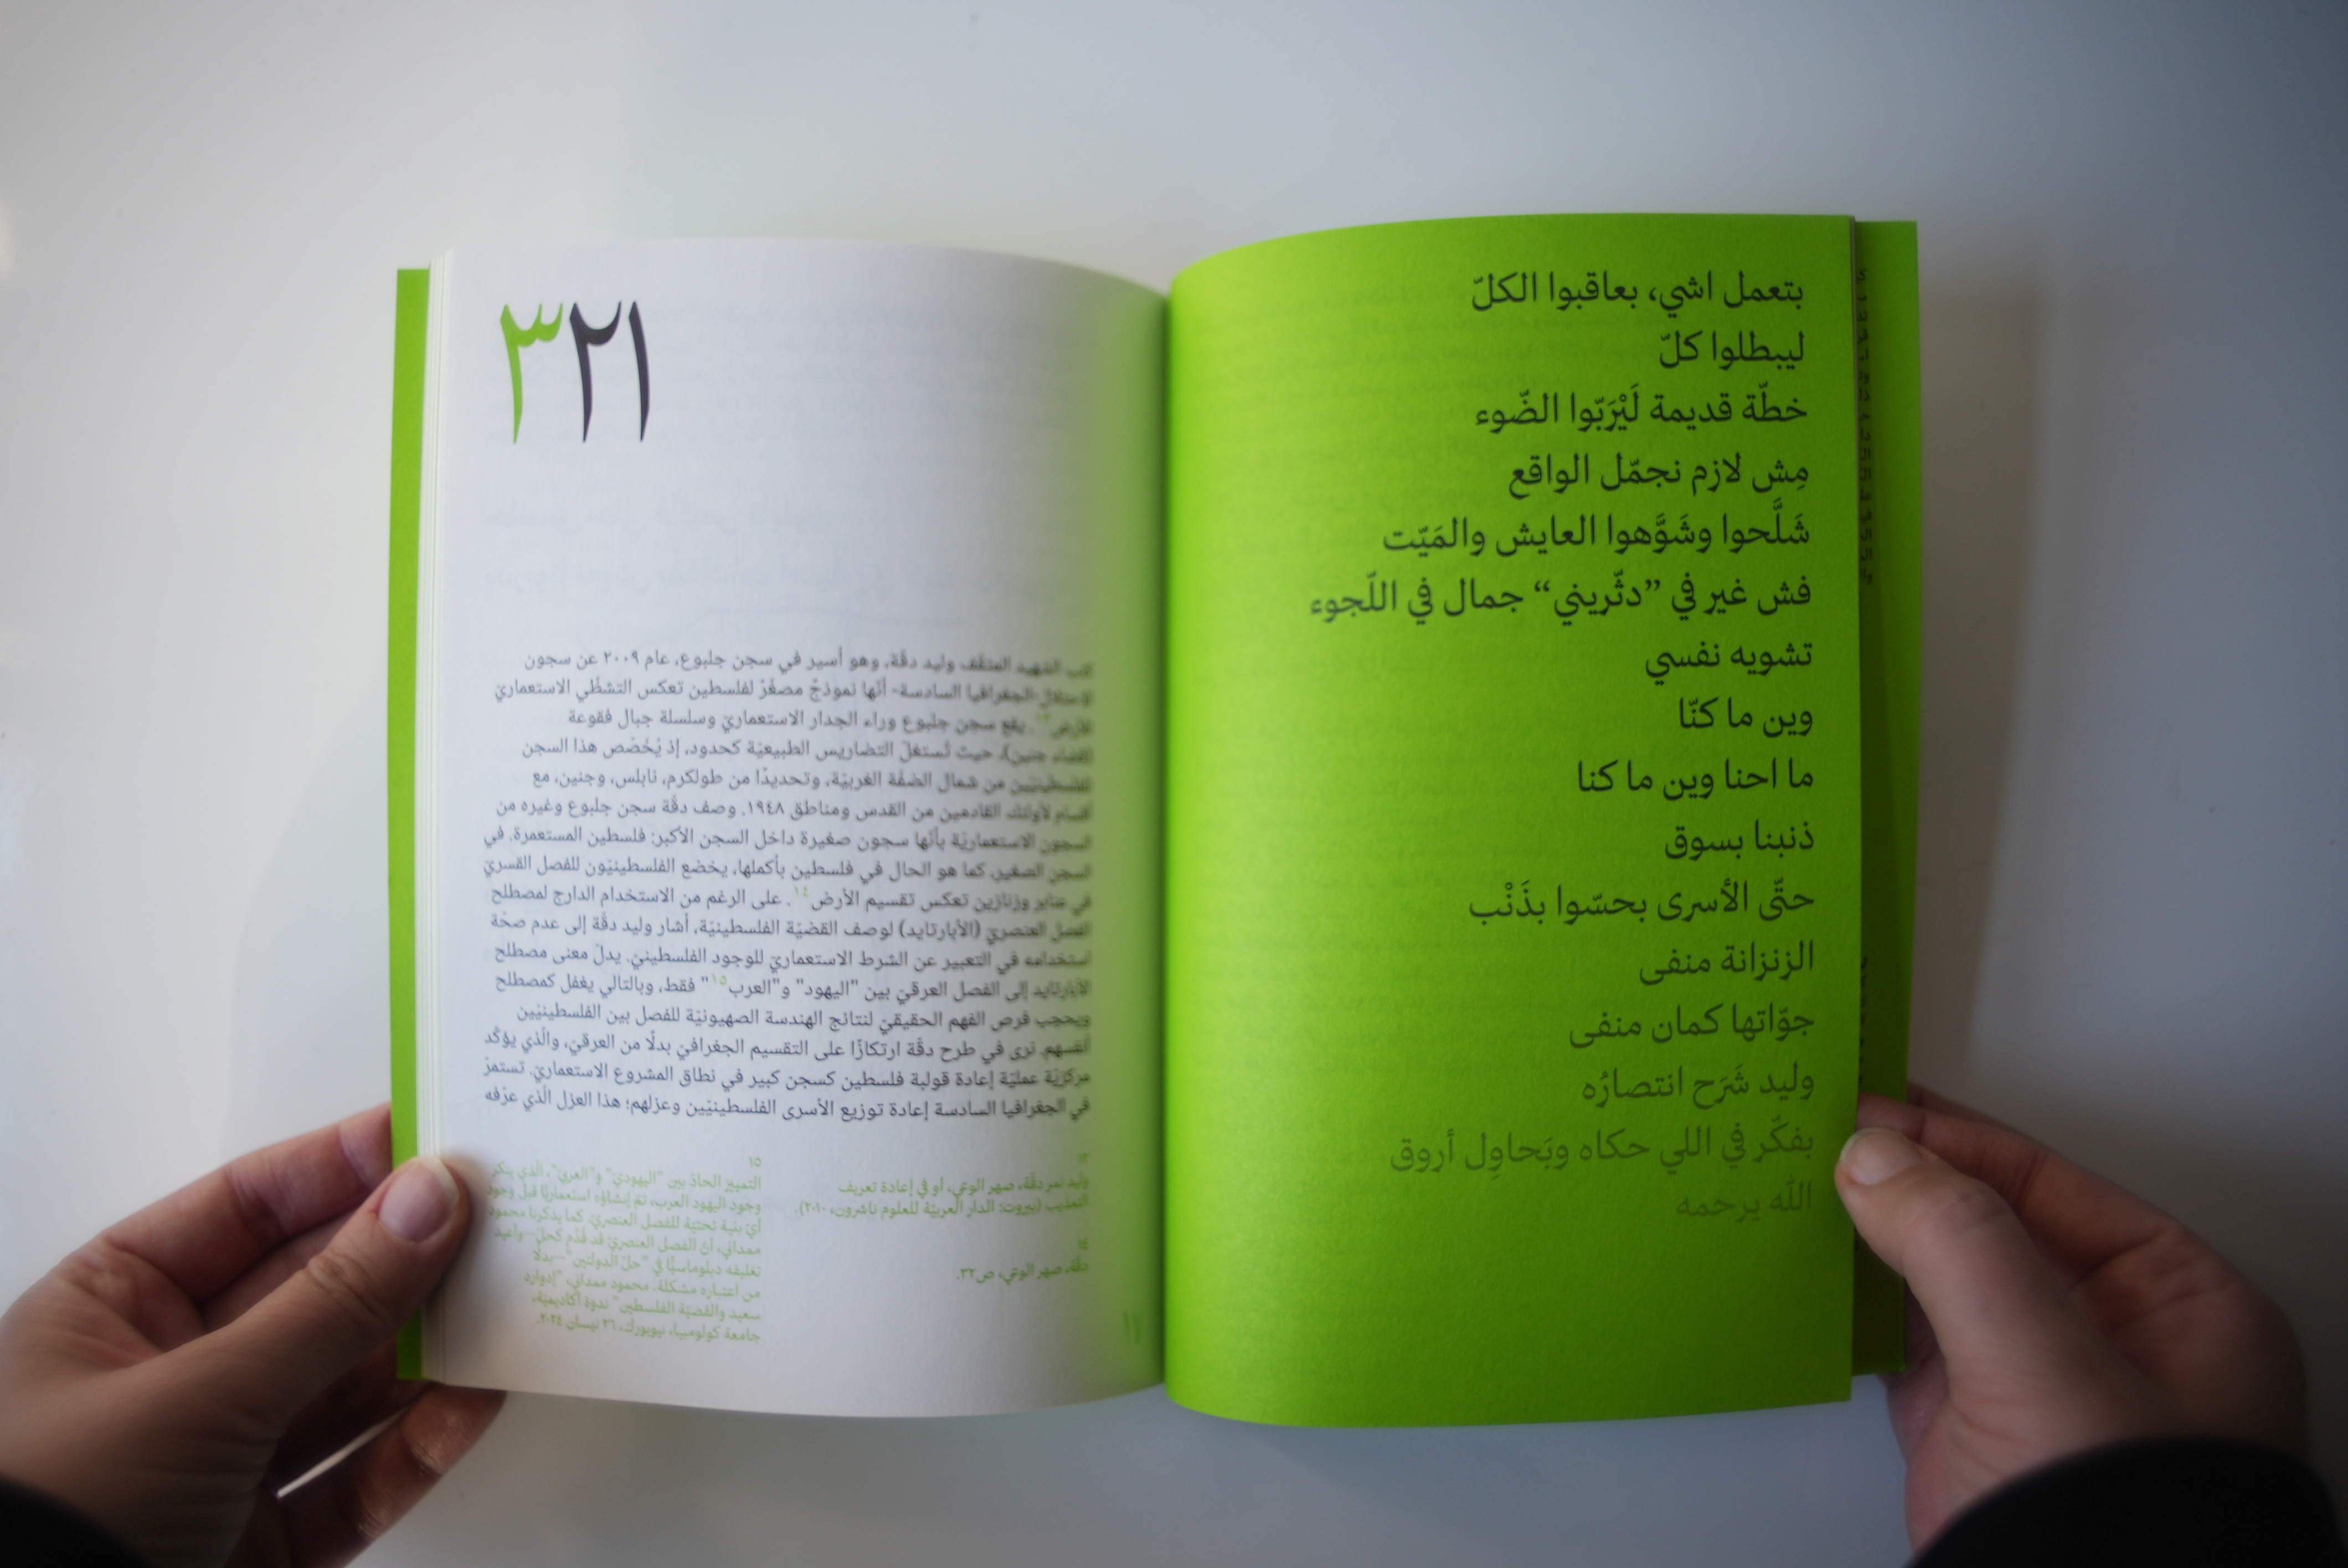 بتعمل اشي، بعاقبوا الكلّ
ليبطلوا كلّ
خطّة قديمة لَيْرَبّوا الضّوء
مِش لازم نجمّل الواقع
شَلَّحوا وشَوَّهوا العايش والمَيّت
فش غير في ”دثّريني“ جمال في اللّجوء
تشويه نفسي
وين ما كنّا
ما احنا وين ما كنا
ذنبنا بسوق
حتّى الأسرى بحسّوا بذَنْب
الزنزانة منفى
جوّاتها كمان منفى
وليد شَرَح انتصارُه
بفكّر في اللي حكاه وبَحاوِل أروق
الله يرحمه
٣٢١
كتب الشهيد المثقّف وليد دقّة، وهو أسير في سجن جلبوع، عام ٢٠٠٩ عن سجون
الاحتلال-الجغرافيا السادسة- أنّها نموذجٌ مصغّرٌ لفلسطين تعكس التشظّي الاستعماريّ
للأرض١٣. يقع سجن جلبوع وراء الجدار الاستعماريّ وسلسلة جبال فقوعة
(قضاء جنين)، حيث تُستغلّ التضاريس الطبيعيّة كحدود، إذ يُخصّص هذا السجن
للفلسطينيّين من شمال الضفّة الغربيّة، وتحديدًا من طولكرم، نابلس، وجنين، مع
أقسام لأولئك القادمين من القدس ومناطق ١٩٤٨. وصف دقّة سجن جلبوع وغيره من
السجون الاستعماريّة بأنّها سجون صغيرة داخل السجن الأكبر: فلسطين المستعمرة. في
السجن الصغير، كما هو الحال في فلسطين بأكملها، يخضع الفلسطينيّون للفصل القسريّ
في عنابر وزنازين تعكس تقسيم الأرض١٤. على الرغم من الاستخدام الدارج لمصطلح
الفصل العنصريّ (الأبارتايد) لوصف القضيّة الفلسطينيّة، أشار وليد دقّة إلى عدم صحّة
استخدامه في التعبير عن الشرط الاستعماريّ للوجود الفلسطينيّ. يدلّ معنى مصطلح
الأبارتايد إلى الفصل العرقيّ بين "اليهود" و"العرب١٥" فقط، وبالتالي يغفل كمصطلح
ويحجب فرص الفهم الحقيقيّ لنتائج الهندسة الصهيونيّة للفصل بين الفلسطينيّين
أنفسهم. نرى في طرح دقّة ارتكازًا على التقسيم الجغرافيّ بدلًا من العرقيّ، والّذي يؤكّد
مركزيّة عمليّة إعادة قولبة فلسطين كسجن كبير في نطاق المشروع الاستعماريّ. تستمرّ
في الجغرافيا السادسة إعادة توزيع الأسرى الفلسطينيّين وعزلهم؛ هذا العزل الّذي عرّفه
١٣
وليد نمر دقّة، صهر الوعي، أو في إعادة تعريف
التعذيب (بيروت: الدار العربيّة للعلوم ناشرون، ٢٠١٠).
١٤
دقّة، صهر الوعي، ص٣٢.
١٥
التمييز الحادّ بين "اليهوديّ" و"العربيّ"، الّذي ينكر
وجود اليهود العرب، تمّ إنشاؤه استعماريًّا قبل وجود
أيّ بنية تحتيّة للفصل العنصريّ. كما يذكرنا محمود
ممداني، أنّ الفصل العنصريّ قد قُدِّم كحلّ—وأعيد
تغليفه دبلوماسيًّا في "حلّ الدولتين"—بدلًا
من اعتباره مشكلة. محمود ممداني، "إدوارد
سعيد والقضيّة الفلسطين" ندوة أكاديميّة،
جامعة كولومبيا، نيويورك، ٢٦ نيسان ٢٠٢٤.